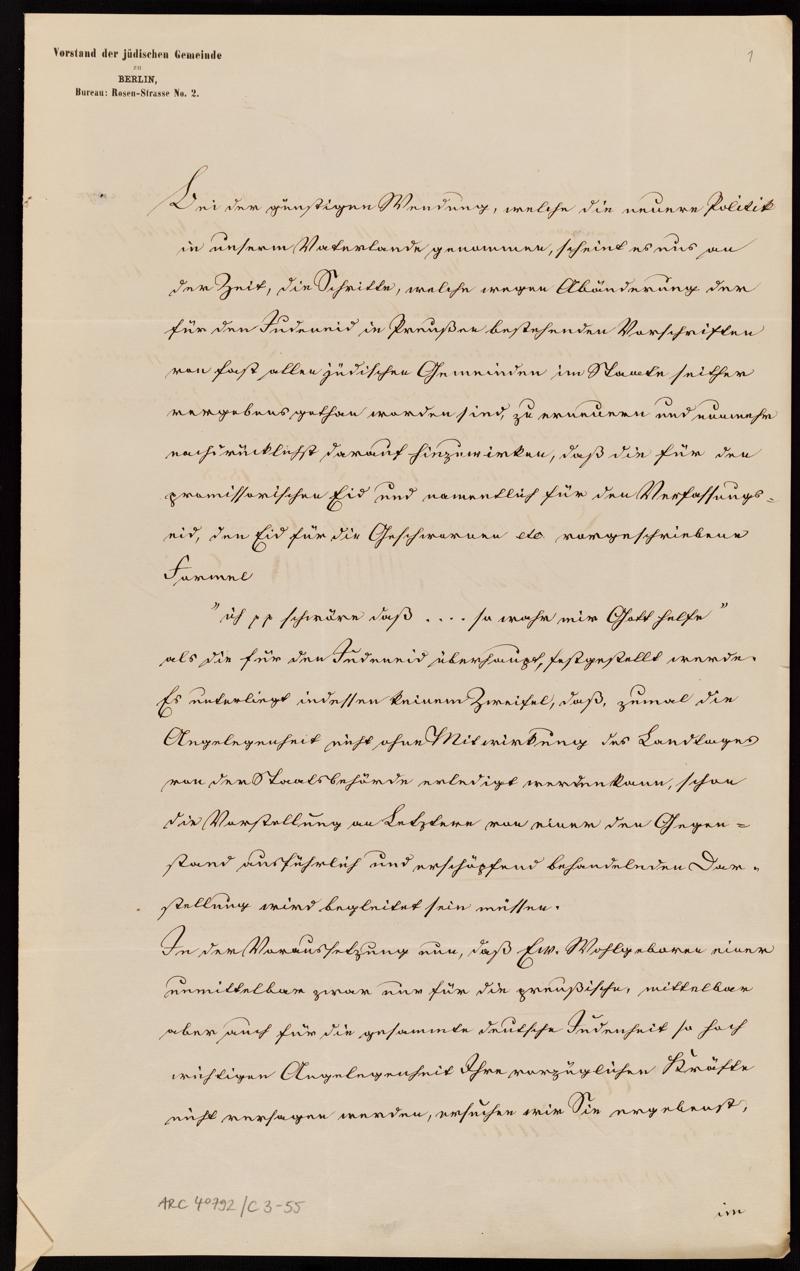 Vorstand der jüdischen Gemeinde
zu
BERLIN,
Bureau: Rosen-Strasse No. 2.
1
Bei der günstigen Wendung, welche die neuere Politik
in unserm Vaterlande genommen, scheint es uns an
der Zeit, die Schritte, welche wegen Abänderung der
für den Judeneid in Preußen bestehenden Vorschriften
von fast allen jüdischen Gemeinden im Staate seither
vergebens gethan worden sind, zu erneuern und nunmehr
nachdrücklichst darauf hinzuwirken, daß die für den
promissorischen Eid und namentlich für den Verfassungs=
eid, den Eid für die Geschwornen etc vorgeschriebene
Formel
"ich pp schwöre daß .... so wahr mir Gott helfe"
als die für den Judeneid überhaupt, festgestellt werde.
Es unterliegt indessen keinem Zweifel, daß, zumal die
Angelegenheit nicht ohne Mitwirkung des Landtages
von der Staatsbehörde erledigt werden kann, schon
die Vorstellung an Letztere von einer den Gegen=
stand ausführlich und erschöpfend behandelnden Dar=
stellung wird begleitet sein müssen.
In der Voraussetzung nun, daß Ew. Wohlgeboren einer
unmittelbar zwar nur für die preußische, mittelbar
aber auch für die gesammte deutsche Judenheit so hoch
wichtigen Angelegenheit Ihre vorzüglichen Kräfte
nicht versagen werden, ersuchen wir Sie ergebenst,
im
ARC 4° 792/C 3-55